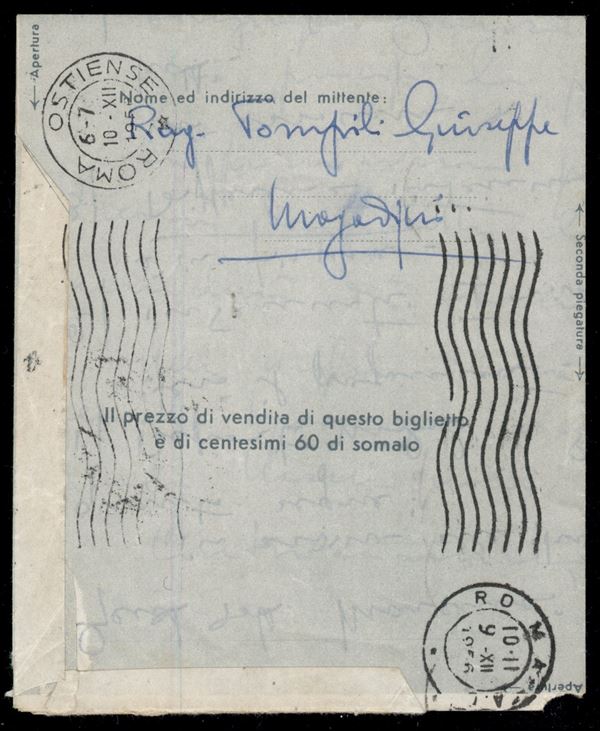 Apertura
OSTIENSE ROMA
6-7
10-XII
Nome ed indirizzo del mittente:
Rag. Pompili Giuseppe
Mogadiscio
Seconda piegatura
Il prezzo di vendita di questo biglietto
è di centesimi 60 di somalo
ROMA
10-11
9-XII
1956
Apertura